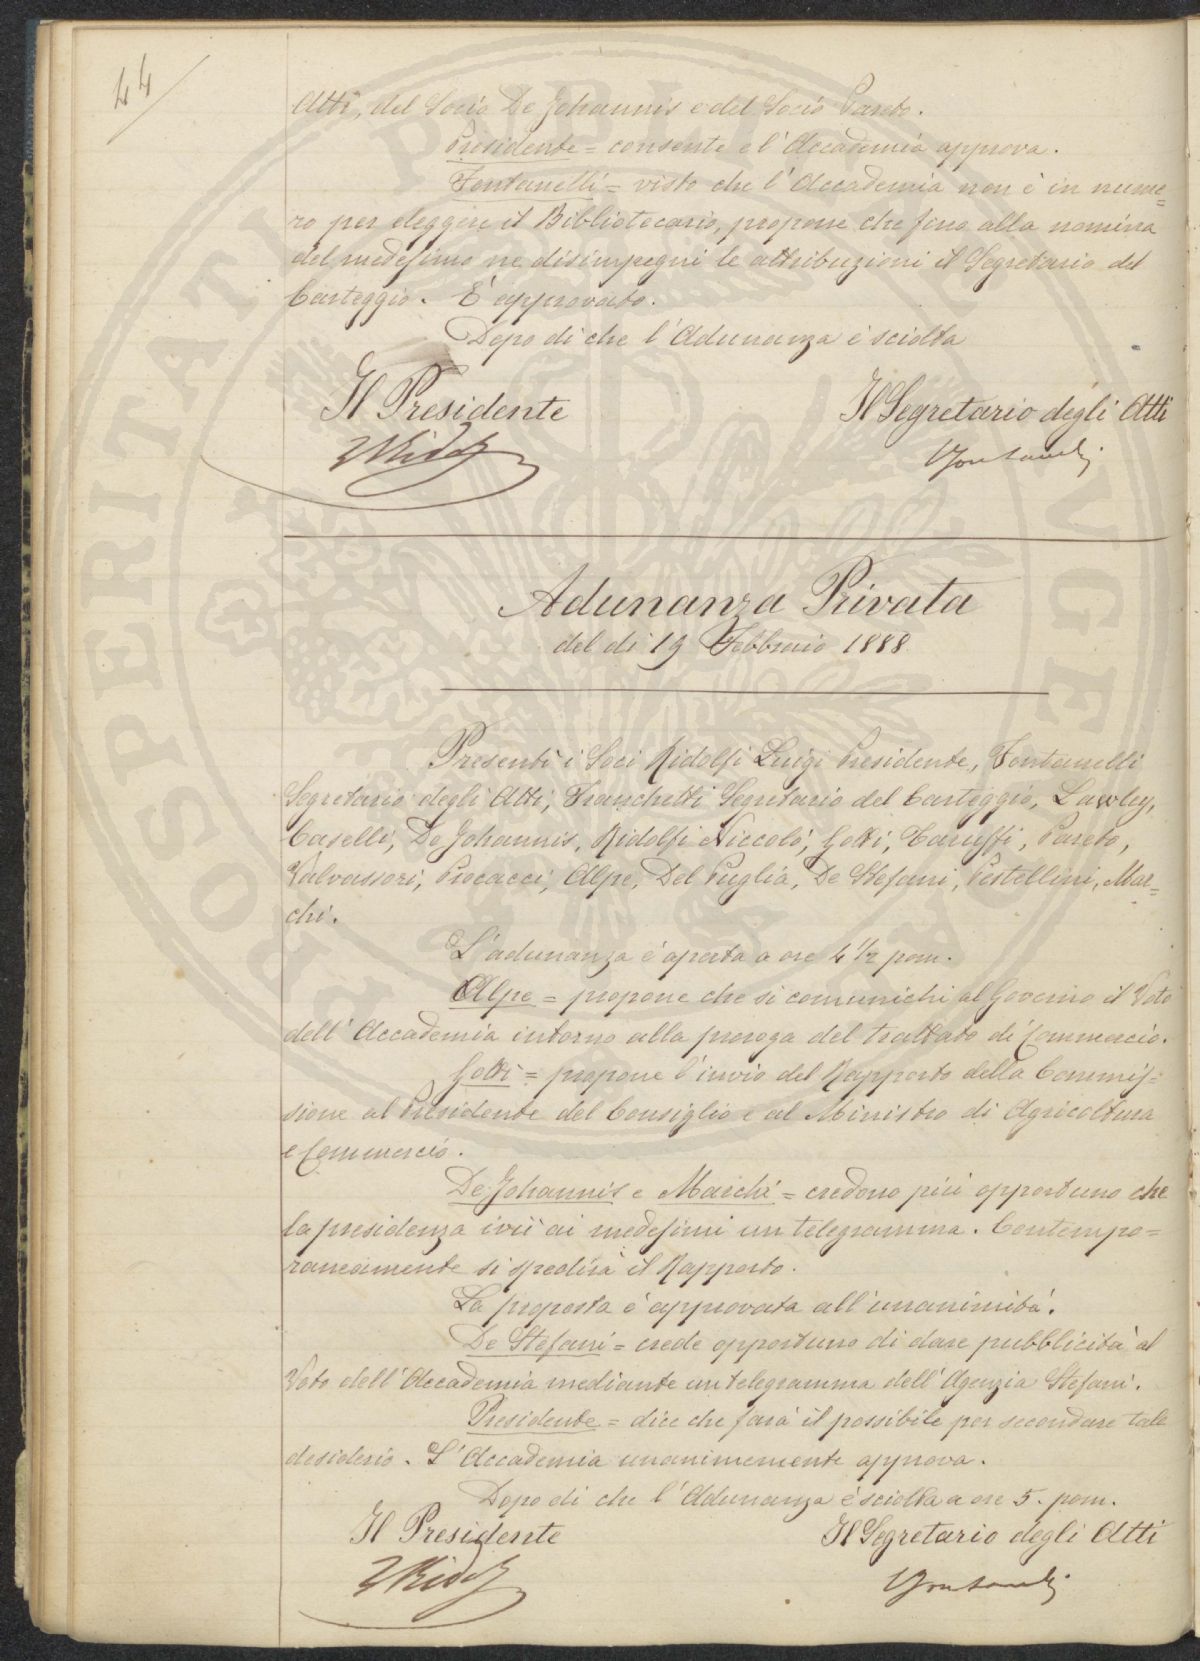 44
Atti, del Socio De Johannis e del Socio Pareto.
Presidente = consente e l'Accademia approva.
Fontanelli = visto che l'Accademia non è in nume=
ro per eleggere il Bibliotecario, propone che fino alla nomina
del medesimo ne disimpegni le attribuzioni il Segretario del
Carteggio. È approvato.
Dopo di che l'Adunanza è sciolta
Il Presidente
Il Segretario degli Atti
LRidolfi
Fontanelli
Adunanza Privata
del dì 19 Febbraio 1888.
Presenti i Soci Ridolfi Luigi Presidente, Fontanelli
Segretario degli Atti, Franchetti Segretario del Carteggio, Lawley,
Caselli, De Johannis, Ridolfi Niccolò, Gotti, Caruffi, Pareto,
Valvassori, Procacci, Alpe, Del Puglia, De Stefani, Pestellini, Mar=
chi.
L'adunanza è aperta a ore 4 1/2 pom.
Alpe = propone che si comunichi al Governo il Voto
dell'Accademia intorno alla proroga del trattato di Commercio.
Gotti = propone l'invio del Rapporto della Commis=
sione al Presidente del Consiglio e al Ministro di Agricoltura
e Commercio.
De Johannis e Marchi = credono più opportuno che
la presidenza ivii ai medesimi un telegramma. Contempo=
raneamente si spedirà il Rapporto.
La proposta è approvata all'unanimità.
De Stefani = crede opportuno di dare pubblicità al
Voto dell'Accademia mediante un telegramma dell'Agenzia Stefani.
Presidente = dice che farà il possibile per secondare tale
desiderio. L'Accademia unanimemente approva.
Dopo di che l'Adunanza è sciolta a ore 5. pom.
Il Presidente
Il Segretario degli Atti
LRidolfi
Fontanelli
PROSPERITATI PUBLICAE AUGENDAE